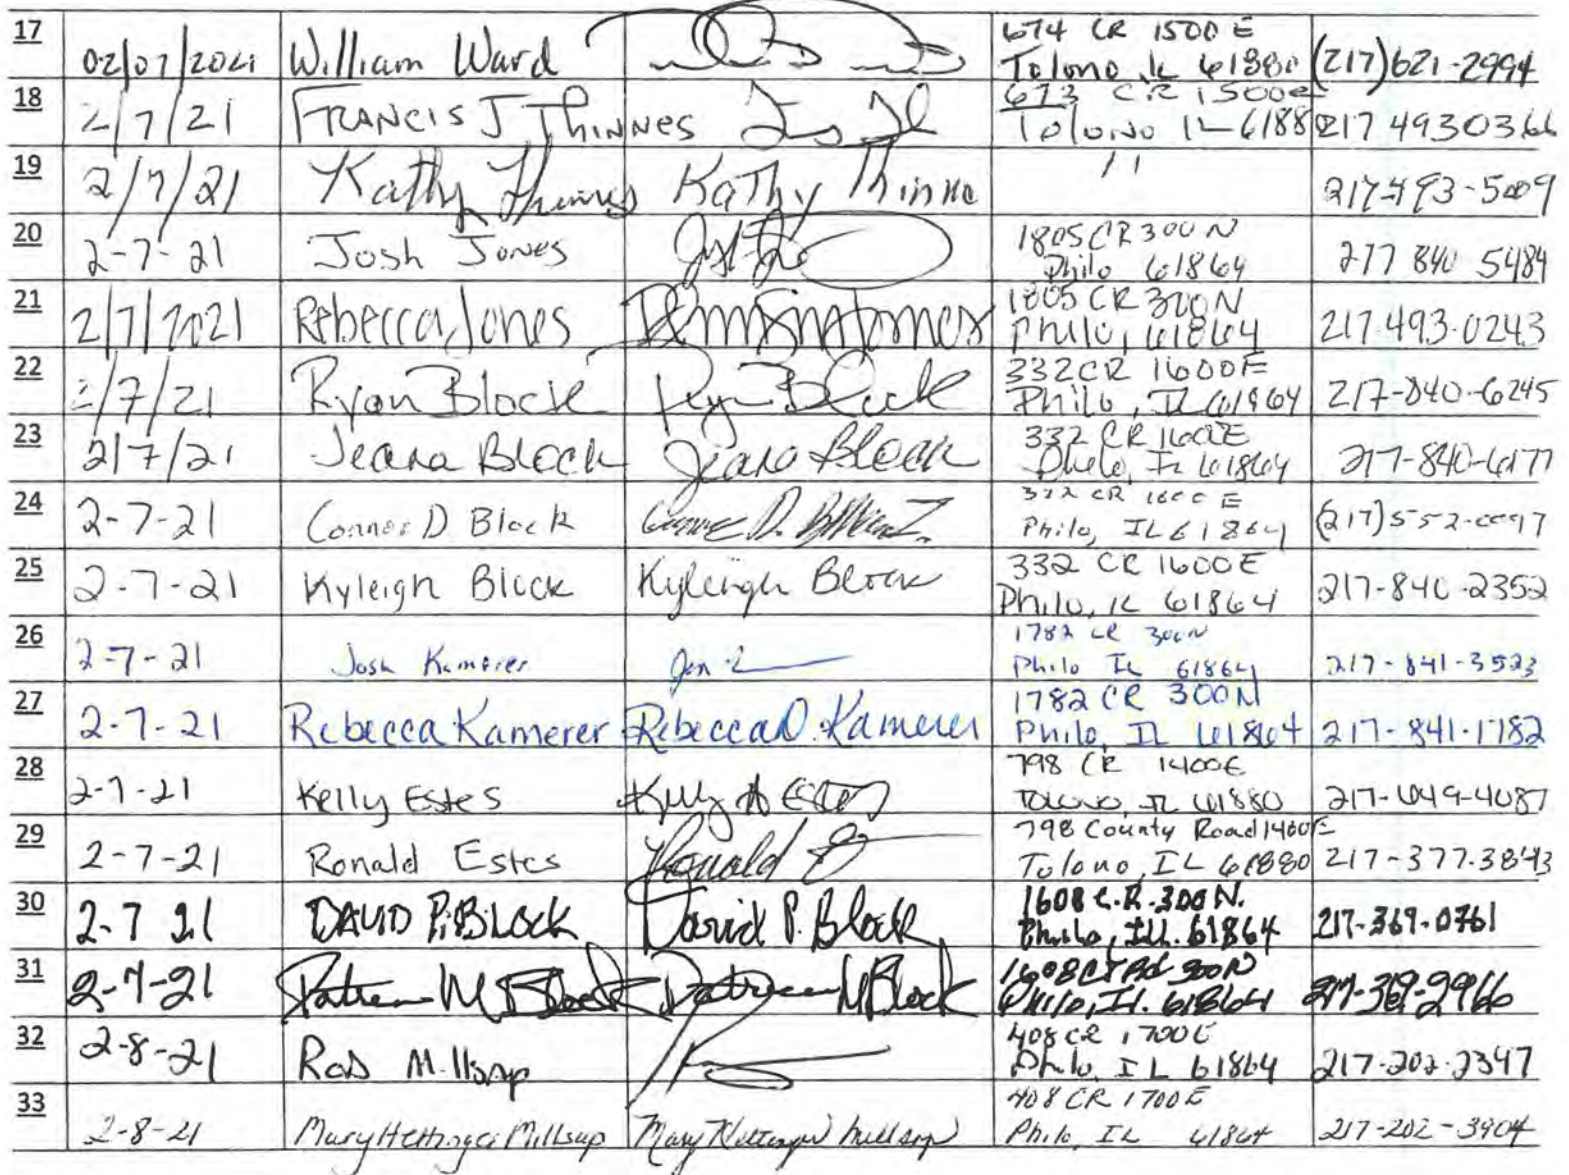 17 02/07/2021 William Ward 674 CR 1500 E
Tolono, IL 61880 (217)621-2994
18 2/7/21 FRANCIS J THINNES 673 CR 1500e
Tolono IL 61880 217 4930366
19 2/7/21 Kathy Thinnes Kathy Thinne 11 217-493-5009
20 2-7-21 Josh Jones 1805 CR 300 N
Philo 61864 217 840 5484
21 2/7/2021 Rebecca Jones 1805 CR 300N
Philo, 61864 217.493.0243
22 2/7/21 Ryan Block Ryan Block 332 CR 1600E
Philo, IL 61864 217-840-6245
23 2/7/21 Jeana Block Jeana Block 332 CR 1600E
Philo, IL 61864 217-840-6177
24 2-7-21 Connor D. Block 332 CR 1600 E
Philo, IL 61864 (217)552-0097
25 2-7-21 Kyleigh Block Kyleigh Block 332 CR 1600E
Philo, IL 61864 217-840-2352
26 2-7-21 Josh Kamerer 1782 CR 300N
Philo IL 61864 217-841-3523
27 2-7-21 Rebecca Kamerer Rebecca D. Kamerer 1782 CR 300N
Philo, IL 61864 217-841-1782
28 2-7-21 Kelly Estes Kelly A Estes 798 CR 1400E
Tolono, IL 61880 217-649-4087
29 2-7-21 Ronald Estes Ronald 798 County Road 1400E
Tolono, IL 61880 217-377-3843
30 2-7 21 DAVID P. BLOCK David P. Block 1608 C.R. 300 N.
Philo, Ill. 61864 217-369-0761
31 2-7-21 Patricia M Block Patricia M Block 1608 CT Rd 300N
Philo, Il. 61864 217-369-2966
32 2-8-21 Rod Millsap 408 CR 1700E
Philo, IL 61864 217-202-2347
33 2-8-21 Mary Hettinger Millsap Mary Hettinger Millsap 408 CR 1700E
Philo, IL 61864 217-202-3904